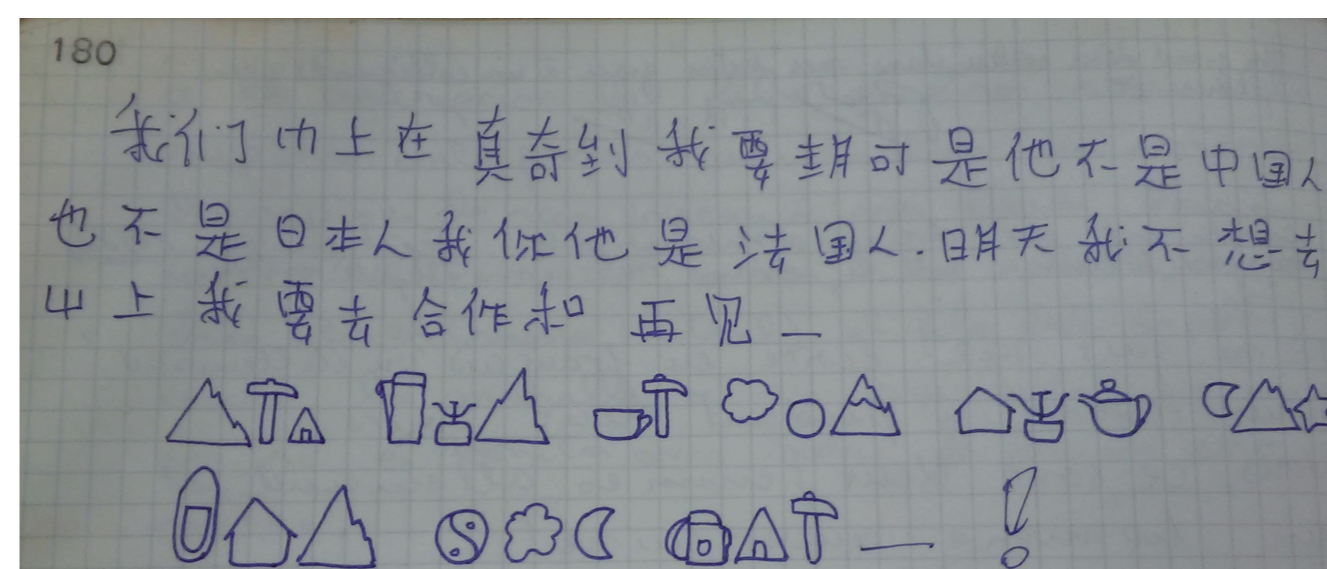 180
我们 山上在 真奇到 我要 可是他不是中国人
也不是日本人我你他是法国人.明天我不想去
山上我要去合作和 再见 —